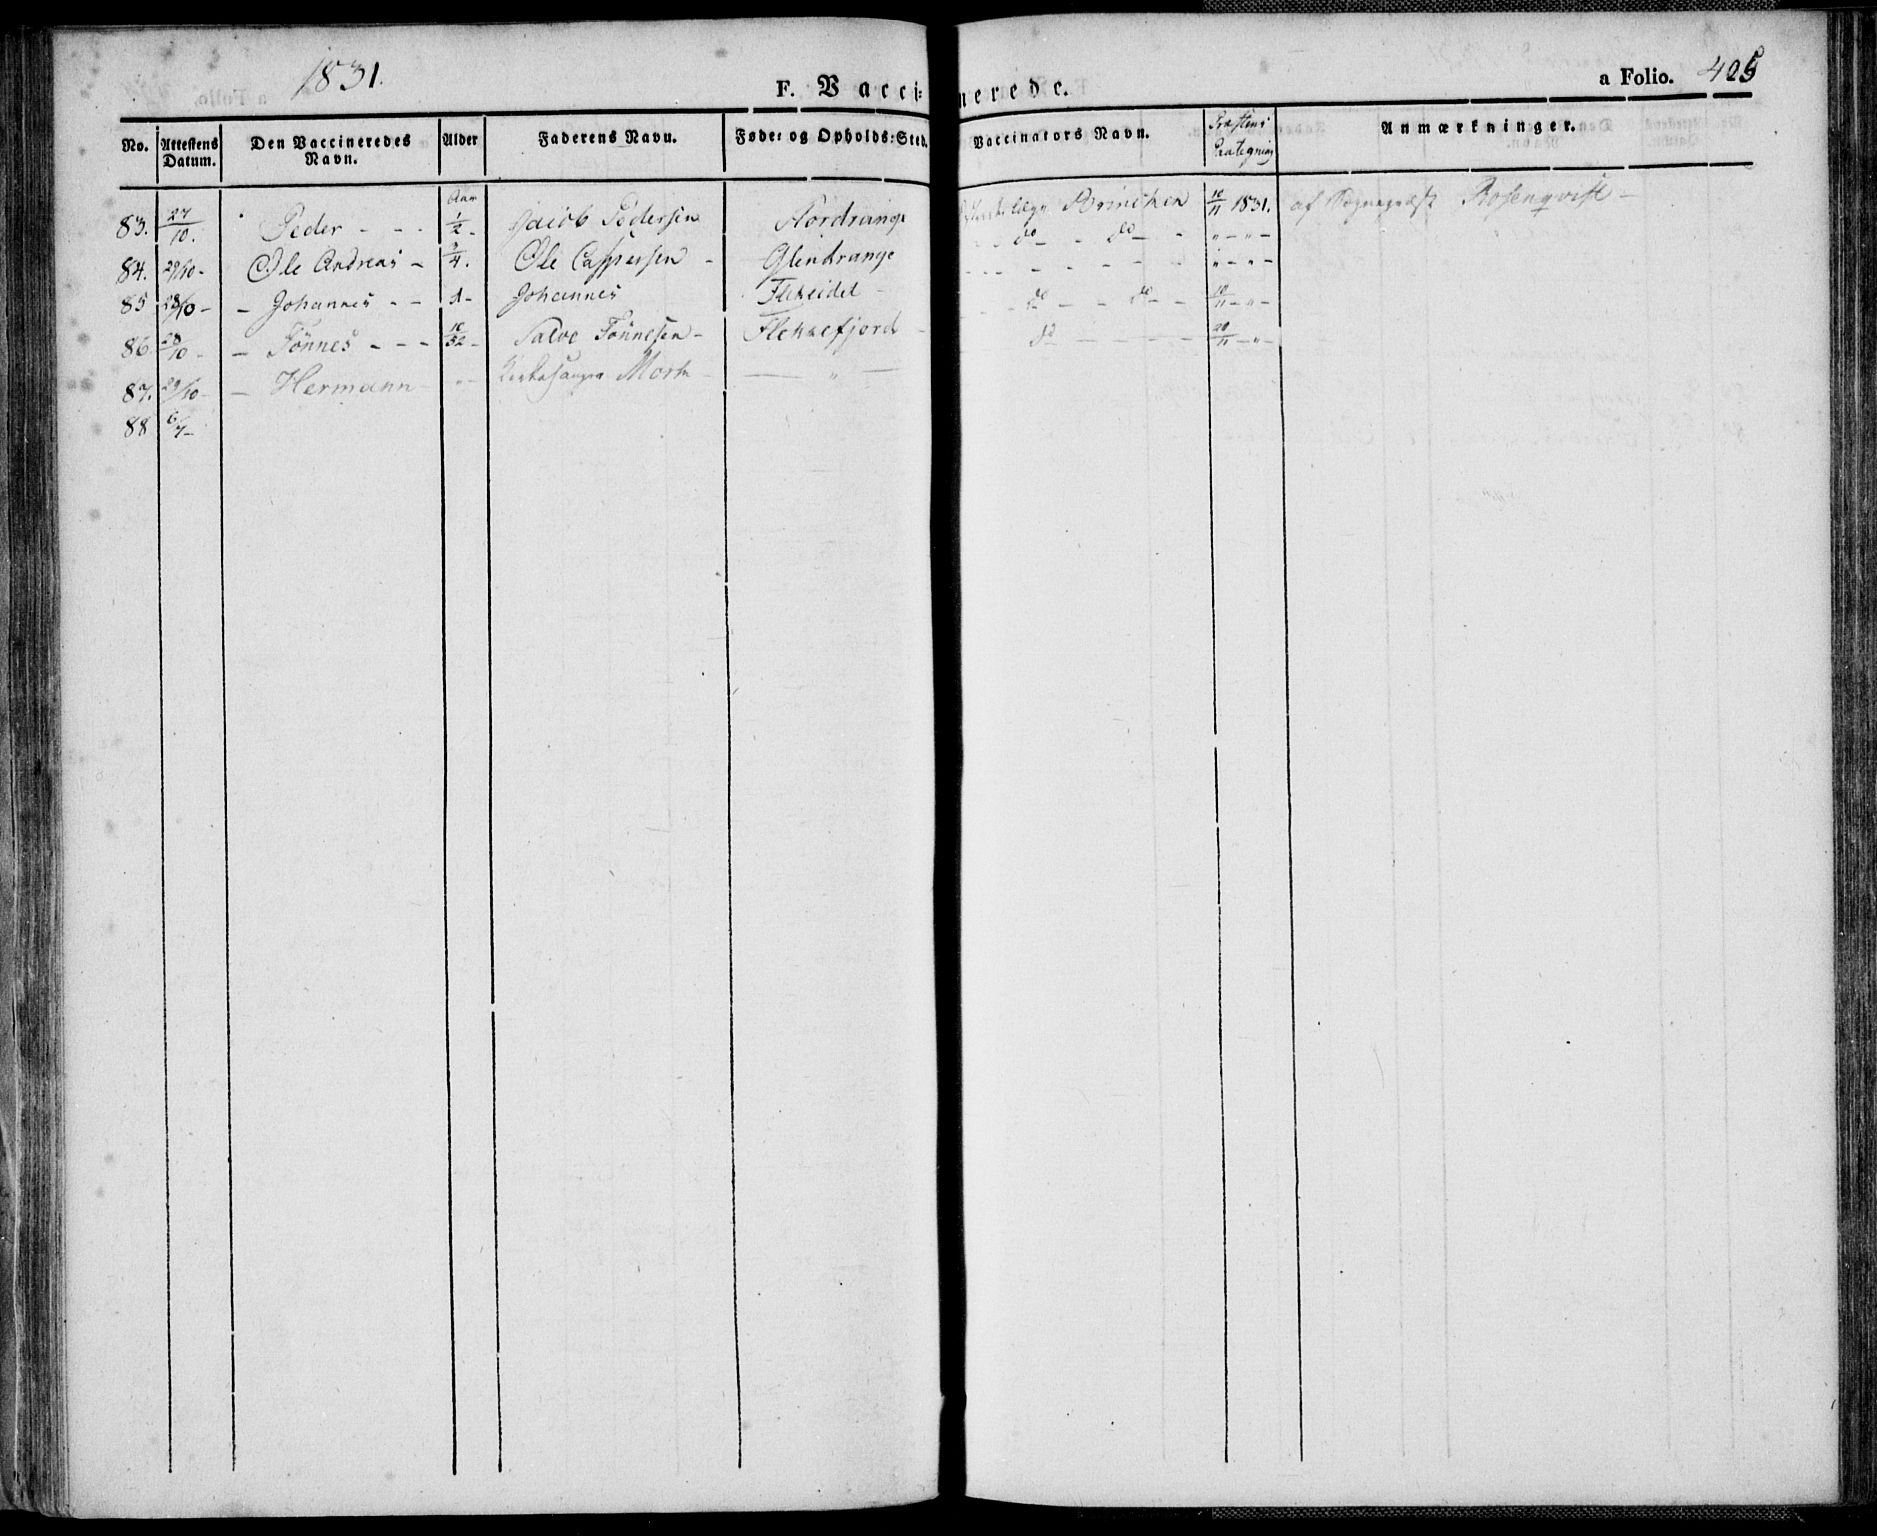 1831.
F. Vacci=nerede.
a Folio. 405
No. Attestens Datum. Den Vaccineredes Navn. Alder Faderens Navn. Føde= og Opholds=Sted. Vaccinators Navn. Præstens Paategning Anmærkninger.
Aar
83. 27/10. Peder - - - 1/2 - Jacob Pedersen Nordrange Brincken 10/11 1831. af Sognepræst Rosenqvist -
84. 29/10 - Ole Andreas - 3/4. Ole Caspersen - Glendrange - - do - - do - - " - " -
85 28/10 - - Johannes - - 1 - Johannes Flikeidet - - - - - - - - " - " -
86. 28/10 - - Tönnes - - - 10/52 - Salve Tönnesen - Flekkefjord do - - do - - 10/11 - " -
87. 29/10 - - Hermann - " - Kirkesanger Morten - — " — do - - - - - 20/11 - " -
88 6/7 -